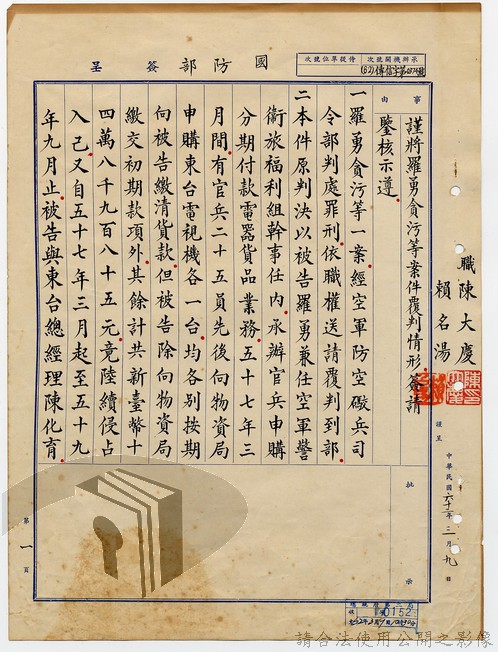 國防部簽呈
承辦機關號次
待從單位號次
職陳大慶
賴名湯
謹呈
中華民國六十二年三月九日
事由
謹將羅勇貪污等案件覆判情形簽請
鑒核示遵。
一羅勇貪污等一案經空軍防空礮兵司
令部判處罪刑。依職權送請覆判到部。
二本件原判決以被告羅勇兼任空軍警
衛旅福利組幹事任內。承辦官兵申購
分期付款電器貨品業務。五十七年三
月間。有官兵二十五員先後向物資局
申購東台電視機各一台。均各別按期
向被告繳清貨款。但被告除向物資局
繳交初期款項外。其餘計共新臺幣十
四萬八千九百八十五元。竟陸續侵占
入己。又自五十七年三月起至五十九
年九月止。被告與東台總經理陳化育。
批示
第一頁
0152
請合法使用公開之影像